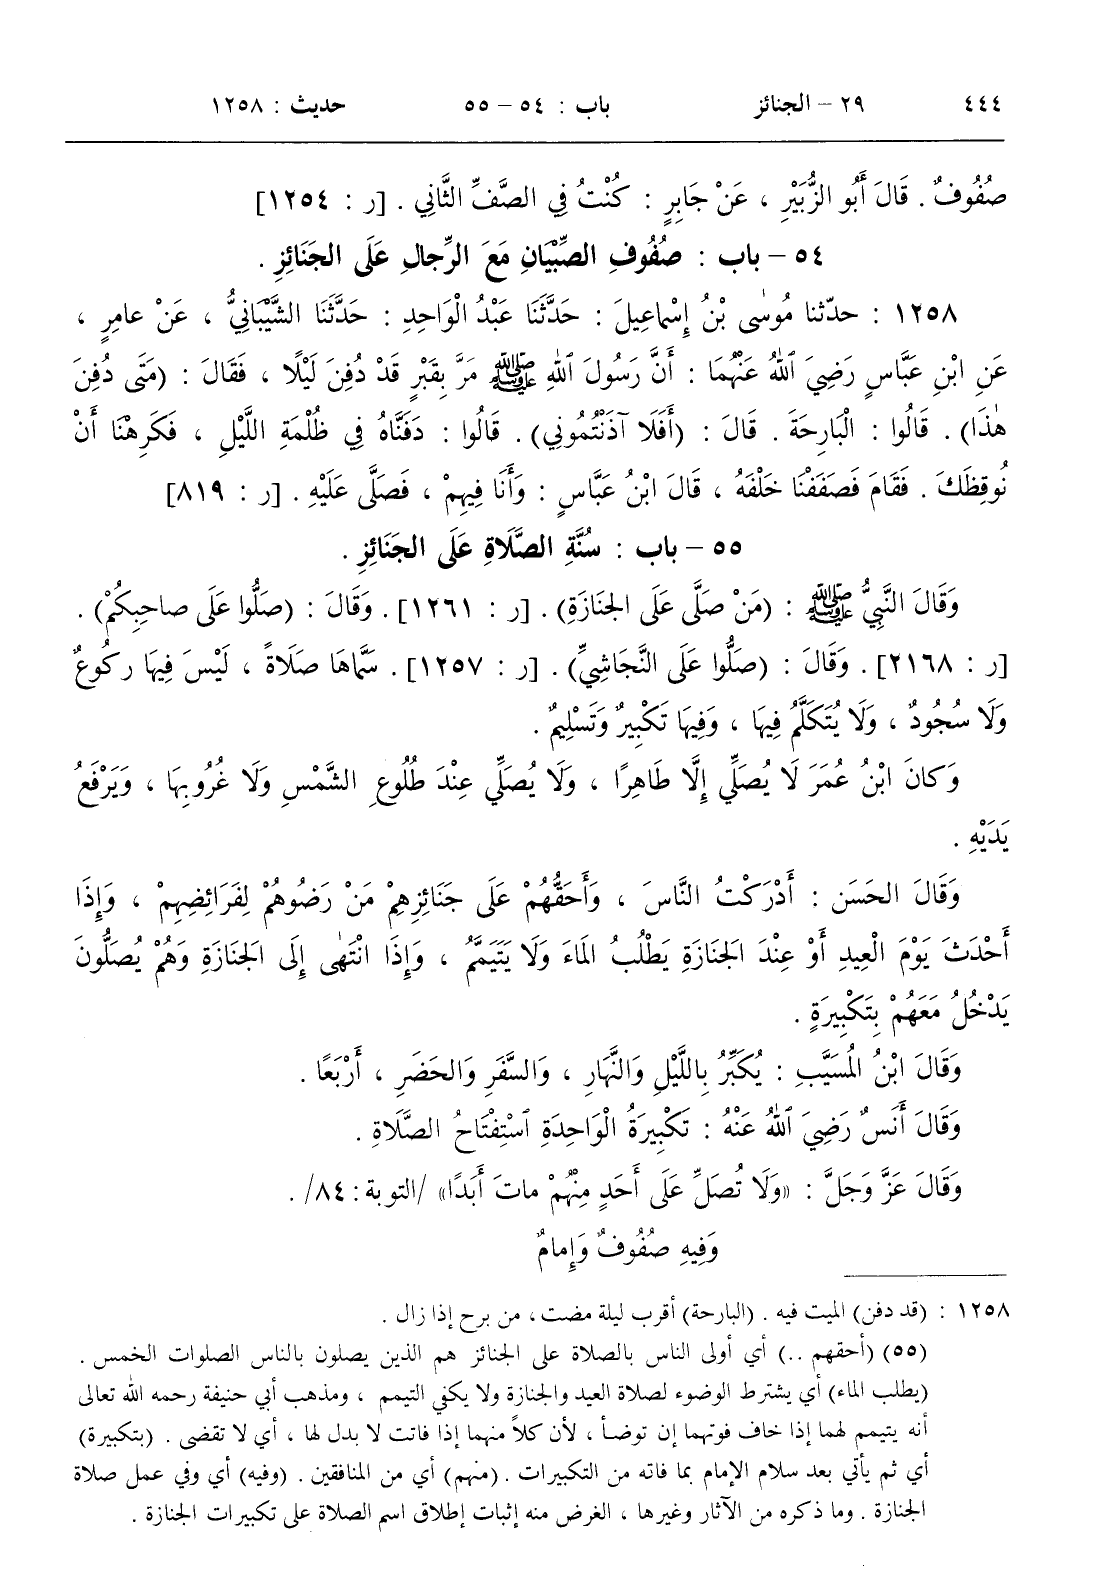 ٤٤٤ ٢٩ – الجنائز باب : ٥٤ – ٥٥ حديث : ١٢٥٨
صُفُوفٌ . قَالَ أَبُو الزُّبَيْرِ ، عَنْ جَابِرٍ : كُنْتُ فِي الصَّفِّ الثَّانِي . [ر : ١٢٥٤]
٥٤ – باب : صُفُوفِ الصِّبْيَانِ مَعَ الرِّجالِ عَلَى الجَنَائِزِ .
١٢٥٨ : حدّثنا مُوسٰى بْنُ إِسْماعِيلَ : حَدَّثَنَا عَبْدُ الْوَاحِدِ : حَدَّثَنَا الشَّيْبَانِيُّ ، عَنْ عامِرٍ ،
عَنِ ابْنِ عَبَّاسٍ رَضِيَ ٱللهُ عَنْهُمَا : أَنَّ رَسُولَ ٱللهِ ﷺ مَرَّ بِقَبْرٍ قَدْ دُفِنَ لَيْلًا ، فَقَالَ : (مَتَى دُفِنَ
هٰذَا) . قَالُوا : الْبَارِحَةَ . قَالَ : (أَفَلَا آذَنْتُمُونِي) . قَالُوا : دَفَنَّاهُ فِي ظُلْمَةِ اللَّيْلِ ، فَكَرِهْنَا أَنْ
نُوقِظَكَ . فَقَامَ فَصَفَفْنَا خَلْفَهُ ، قَالَ ابْنُ عَبَّاسٍ : وَأَنَا فِيهِمْ ، فَصَلَّى عَلَيْهِ . [ر : ٨١٩]
٥٥ – باب : سُنَّةِ الصَّلَاةِ عَلَى الجَنَائِزِ .
وَقَالَ النَّبِيُّ ﷺ : (مَنْ صَلَّى عَلَى الجَنَازَةِ) . [ر : ١٢٦١] . وَقَالَ : (صَلُّوا عَلَى صاحِبِكُمْ) .
[ر : ٢١٦٨] . وَقَالَ : (صَلُّوا عَلَى النَّجَاشِيِّ) . [ر : ١٢٥٧] . سَمَّاهَا صَلَاةً ، لَيْسَ فِيهَا ركُوعٌ
وَلَا سُجُودٌ ، وَلَا يُتَكَلَّمُ فِيهَا ، وَفِيهَا تَكْبِيرٌ وَتَسْلِيمٌ .
وَكانَ ابْنُ عُمَرَ لَا يُصَلِّي إِلَّا طَاهِرًا ، وَلَا يُصَلِّي عِنْدَ طُلُوعِ الشَّمْسِ وَلَا غُرُوبِهَا ، وَيَرْفَعُ
يَدَيْهِ .
وَقَالَ الحَسَن : أَدْرَكْتُ النَّاسَ ، وَأَحَقُّهُمْ عَلَى جَنَائِزِهِمْ مَنْ رَضُوهُمْ لِفَرَائِضِهِمْ ، وَإِذَا
أَحْدَثَ يَوْمَ الْعِيدِ أَوْ عِنْدَ الجَنَازَةِ يَطْلُبُ المَاءَ وَلَا يَتَيَمَّمُ ، وَإِذَا انْتَهٰى إِلَى الجَنَازَةِ وَهُمْ يُصَلُّونَ
يَدْخُلُ مَعَهُمْ بِتَكْبِيرَةٍ .
وَقَالَ ابْنُ المُسَيَّبِ : يُكَبِّرُ بِاللَّيْلِ وَالنَّهَارِ ، وَالسَّفَرِ وَالحَضَرِ ، أَرْبَعًا .
وَقَالَ أَنَسٌ رَضِيَ ٱللهُ عَنْهُ : تَكْبِيرَةُ الْوَاحِدَةِ ٱسْتِفْتَاحُ الصَّلَاةِ .
وَقَالَ عَزَّ وَجَلَّ : «وَلَا تُصَلِّ عَلَى أَحَدٍ مِنْهُمْ ماتَ أَبَدًا» /التوبة: ٨٤/ .
وَفِيهِ صُفُوفٌ وَإِمامٌ
١٢٥٨ : (قد دفن) الميت فيه . (البارحة) أقرب ليلة مضت، من برح إذا زال .
(٥٥) (أحقهم ..) أي أولى الناس بالصلاة على الجنائز هم الذين يصلون بالناس الصلوات الخمس .
(يطلب الماء) أي يشترط الوضوء لصلاة العيد والجنازة ولا يكفي التيمم ، ومذهب أبي حنيفة رحمه الله تعالى
أنه يتيمم لهما إذا خاف فوتهما إن توضأ ، لأن كلاً منهما إذا فاتت لا بدل لها ، أي لا تقضى . (بتكبيرة)
أي ثم يأتي بعد سلام الإمام بما فاته من التكبيرات . (منهم) أي من المنافقين . (وفيه) أي وفي عمل صلاة
الجنازة . وما ذكره من الآثار وغيرها ، الغرض منه إثبات إطلاق اسم الصلاة على تكبيرات الجنازة .